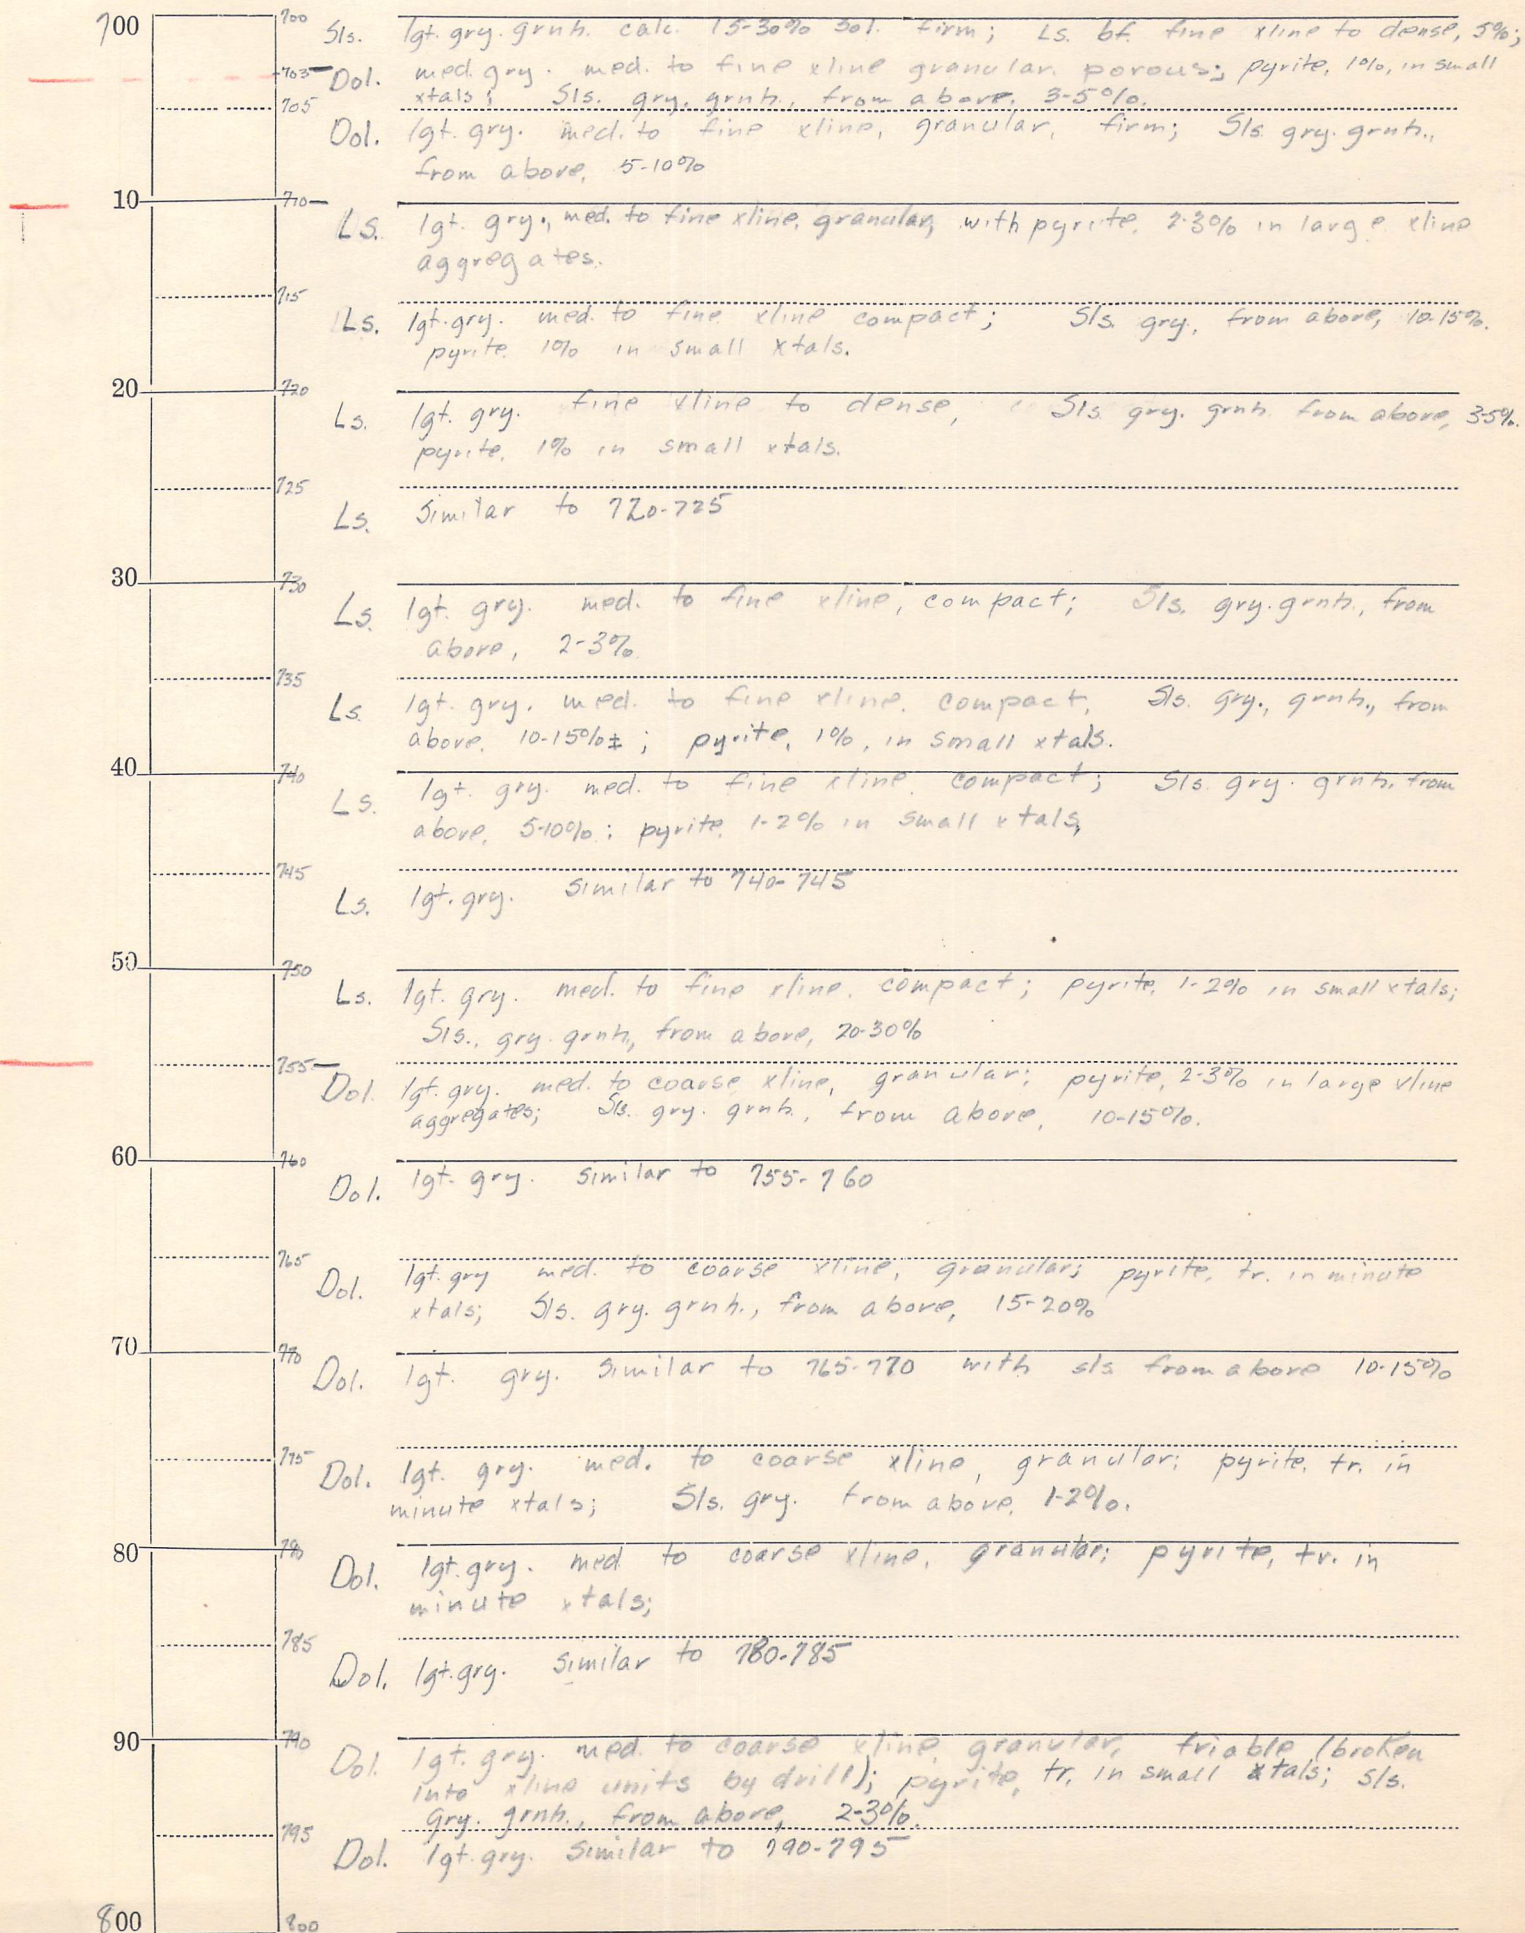 700 700 Sls. lgt. gry. grnh. calc. 15-30% sol. firm; Ls. bf. fine xline to dense, 5%;
703 Dol. med. gry. med. to fine xline granular. porous; pyrite, 1%, in small
xtals; Sls. gry. grnh., from above, 3-5%.
705 Dol. lgt. gry. med. to fine xline, granular, firm; Sls. gry. grnh.,
from above, 5-10%
10 710 Ls. lgt. gry., med. to fine xline, granular, with pyrite, 2-3% in large xline
aggregates.
715 Ls. lgt. gry. med. to fine xline compact; Sls. gry, from above, 10-15%.
pyrite 1% in small xtals.
20 720 Ls. lgt. gry. fine xline to dense, Sls. gry. grnh. from above, 3-5%.
pyrite, 1% in small xtals.
725 Ls. Similar to 720-725
30 730 Ls. lgt. gry. med. to fine xline, compact; Sls. gry. grnh., from
above, 2-3%
735 Ls. lgt. gry. med. to fine xline, compact, Sls. gry., grnh., from
above, 10-15%±; pyrite, 1%, in small xtals.
40 740 Ls. lgt. gry. med. to fine xline, compact; Sls. gry. grnh. from
above, 5-10%; pyrite, 1-2% in small xtals,
745 Ls. lgt. gry. similar to 740-745
50 750 Ls. lgt. gry. med. to fine xline, compact; pyrite, 1-2% in small xtals;
Sls., gry. grnh., from above, 20-30%
755 Dol. lgt. gry. med. to coarse xline, granular; pyrite, 2-3% in large xline
aggregates; Sls. gry. grnh., from above, 10-15%.
60 760 Dol. lgt. gry. similar to 755-760
765 Dol. lgt. gry med. to coarse xline, granular; pyrite, tr. in minute
xtals; Sls. gry. grnh., from above, 15-20%
70 770 Dol. lgt. gry. similar to 765-770 with sls from above 10-15%
775 Dol. lgt. gry. med. to coarse xline, granular; pyrite, tr. in
minute xtals; Sls. gry. from above, 1-2%.
80 780 Dol. lgt. gry. med to coarse xline, granular; pyrite, tr. in
minute xtals;
785 Dol. lgt. gry. similar to 780-785
90 790 Dol. lgt. gry. med. to coarse xline, granular, friable (broken
into xline units by drill); pyrite, tr. in small xtals; sls.
gry. grnh., from above, 2-3%.
795 Dol. lgt. gry. similar to 790-795
800 800